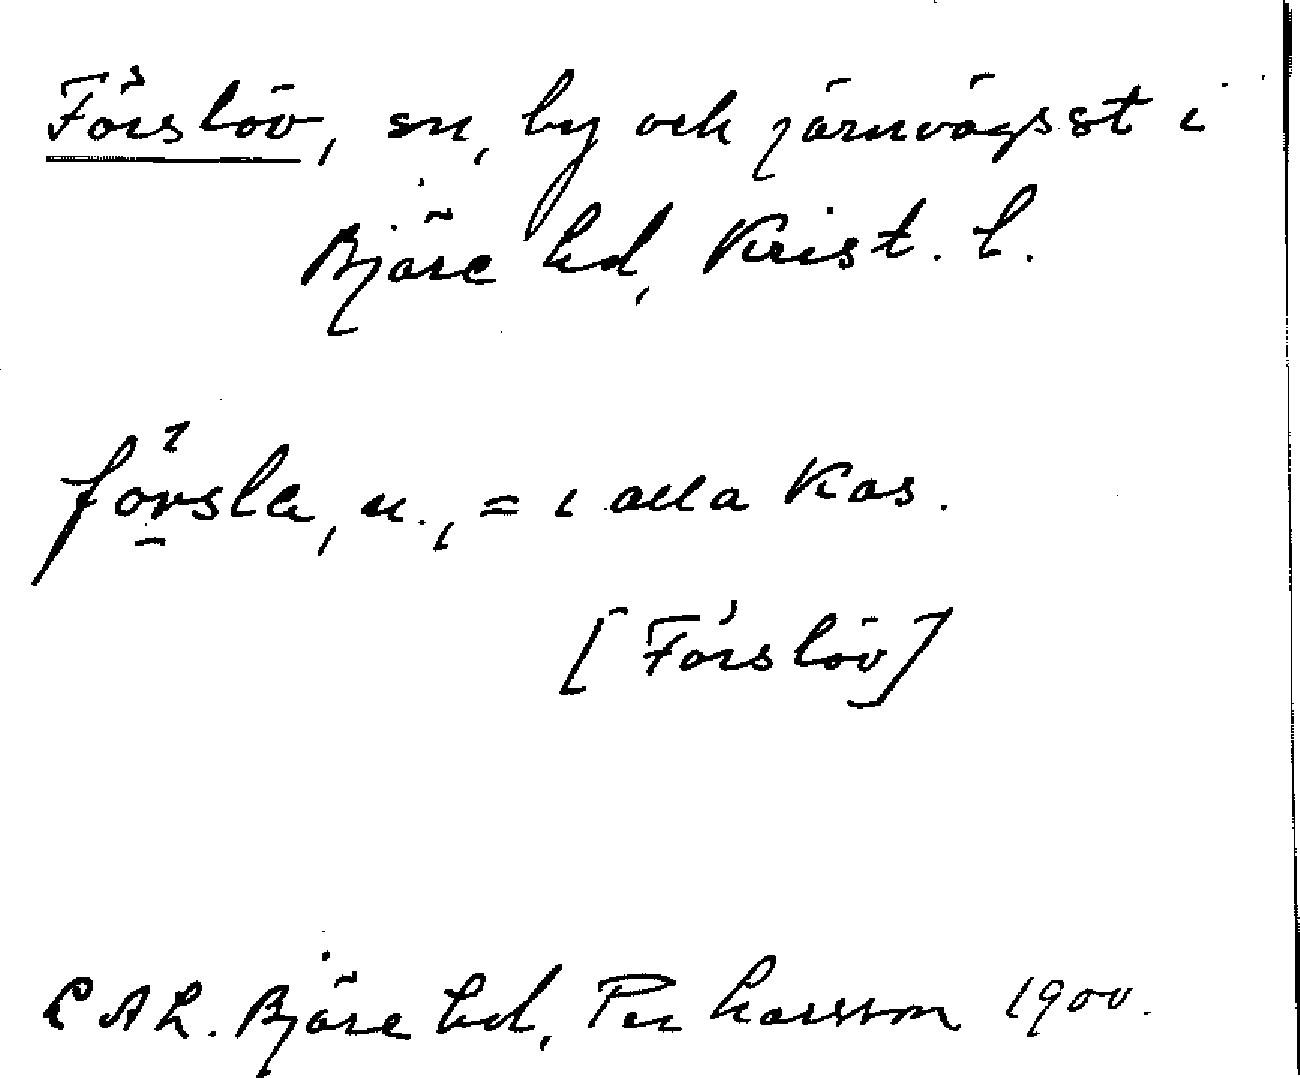 Förslöv, sn, by och järnvägsst i
Bjäre hd, Krist. l.
försla, n., = i alla kas.
[Förslöv]
LAL. Bjäre hd, Per Larsson 1900.